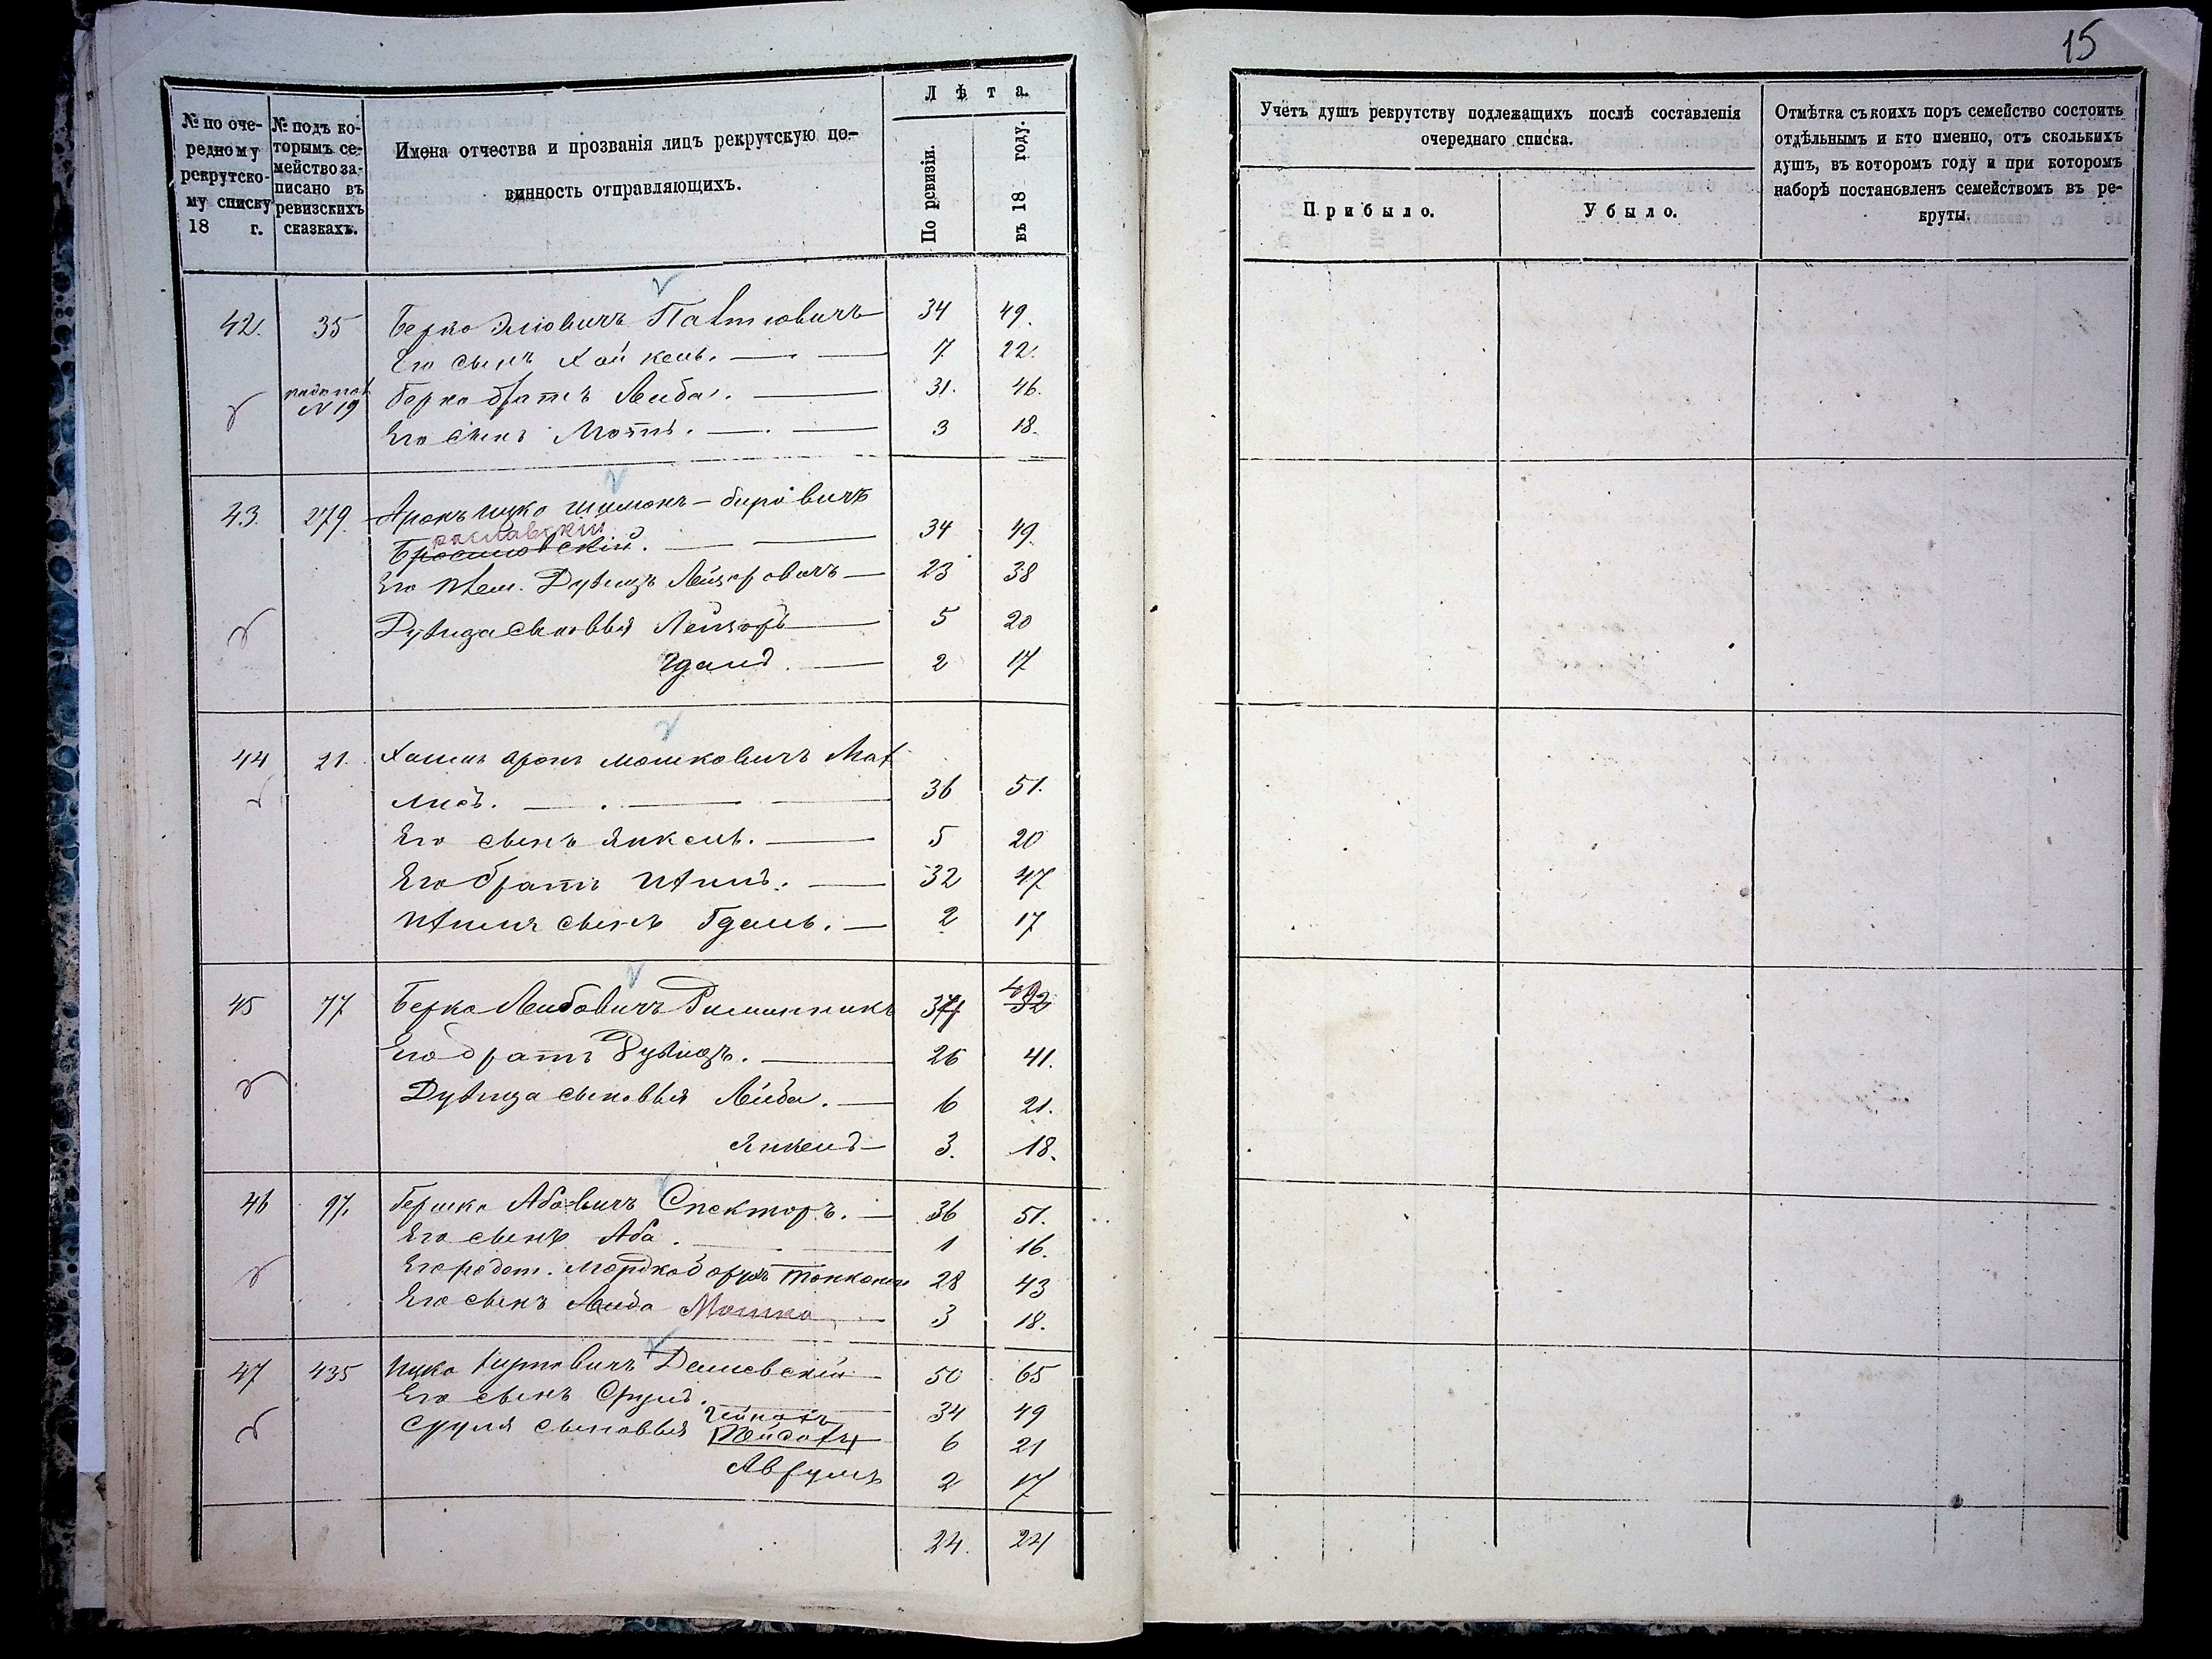 15
№ по оче-
редному
рекрутско-
му списку
18 г.
№ подъ ко-
торымъ се-
мейство за-
писано въ
ревизскихъ
сказкахъ.
Имена отчества и прозванія лицъ рекрутскую по-
винность отправляющихъ.
Лѣта.
По ревизіи.
въ 18 году.
Учетъ душъ рекрутству подлежащихъ послѣ составленія
очереднаго списка.
Прибыло.
Убыло.
Отмѣтка съ коихъ поръ семейство состоитъ
отдѣльнымъ и кто именно, отъ сколькихъ
душъ, въ которомъ году и при которомъ
наборѣ постановленъ семействомъ въ ре-
круты.
42. 35 Берко Эліовичъ 34 49.
Его сынъ Хайкель. 7 22.
№ 19 Берко братъ Лейба. 31. 46.
Его сынъ 3 18.
43. 279. Аронъ Ицко Шимонъ-Беровичъ
раславскій
Бросиловскій. 34 49.
Его плем. Дувидъ Лейзоровичъ 23 38
Дувида сыновья Лейзоръ 5 20
Гдаль. 2 17
44 21. Хаимъ Аронъ Мошковичъ
36 51.
Его сынъ Янкель. 5 20
Его братъ 32 47
сынъ Гдаль. 2 17
45 77 Берко Лейбовичъ 37 49
52
Его братъ Дувидъ. 26 41.
Дувида сыновья Лейба. 6 21.
Янкель 3. 18.
46 97. Гершко Абовичъ Спекторъ. 36 51.
Его сынъ Аба. 1 16.
Его родст. Мордко 28 43
Его сынъ Лейба Мошко 3 18.
47 435 Ицко Дашевскій 50 65
Его сынъ Сруль. 34 49
Сруля сыновья 6 21
Аврумъ 2 17
24. 24